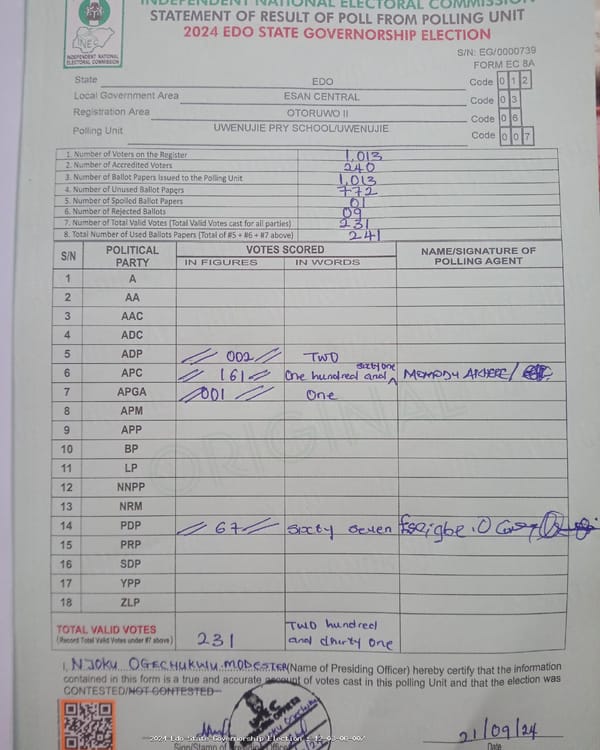 INDEPENDENT NATIONAL ELECTORAL COMMISSION
STATEMENT OF RESULT OF POLL FROM POLLING UNIT
2024 EDO STATE GOVERNORSHIP ELECTION
INEC
INDEPENDENT NATIONAL
ELECTORAL COMMISSION
S/N: EG/0000739
FORM EC 8A
State EDO Code 0 1 2
Local Government Area ESAN CENTRAL Code 0 3
Registration Area OTORUWO II Code 0 6
Polling Unit UWENUJIE PRY SCHOOL/UWENUJIE Code 0 0 7
1. Number of Voters on the Register 1,013
2. Number of Accredited Voters 240
3. Number of Ballot Papers Issued to the Polling Unit 1,013
4. Number of Unused Ballot Papers 772
5. Number of Spoiled Ballot Papers 01
6. Number of Rejected Ballots 09
7. Number of Total Valid Votes (Total Valid Votes cast for all parties) 231
8. Total Number of Used Ballots Papers (Total of #5 + #6 + #7 above) 241
S/N POLITICAL PARTY VOTES SCORED NAME/SIGNATURE OF POLLING AGENT
IN FIGURES IN WORDS
1 A
2 AA
3 AAC
4 ADC
5 ADP 002 TWO
6 APC 161 One hundred and sixty one MOMODU
7 APGA 001 One
8 APM
9 APP
10 BP
11 LP
12 NNPP
13 NRM
14 PDP 67 sixty seven
15 PRP
16 SDP
17 YPP
18 ZLP
ORIGINAL
TOTAL VALID VOTES TWO hundred
(Record Total Valid Votes under #7 above) 231 and thirty one
I, NJOKU OGECHUKWU MODESTER (Name of Presiding Officer) hereby certify that the information
contained in this form is a true and accurate account of votes cast in this polling Unit and that the election was
CONTESTED/NOT CONTESTED
21/09/24
2024 Edo State Governorship Election
Sign/Stamp of Presiding Officer Date